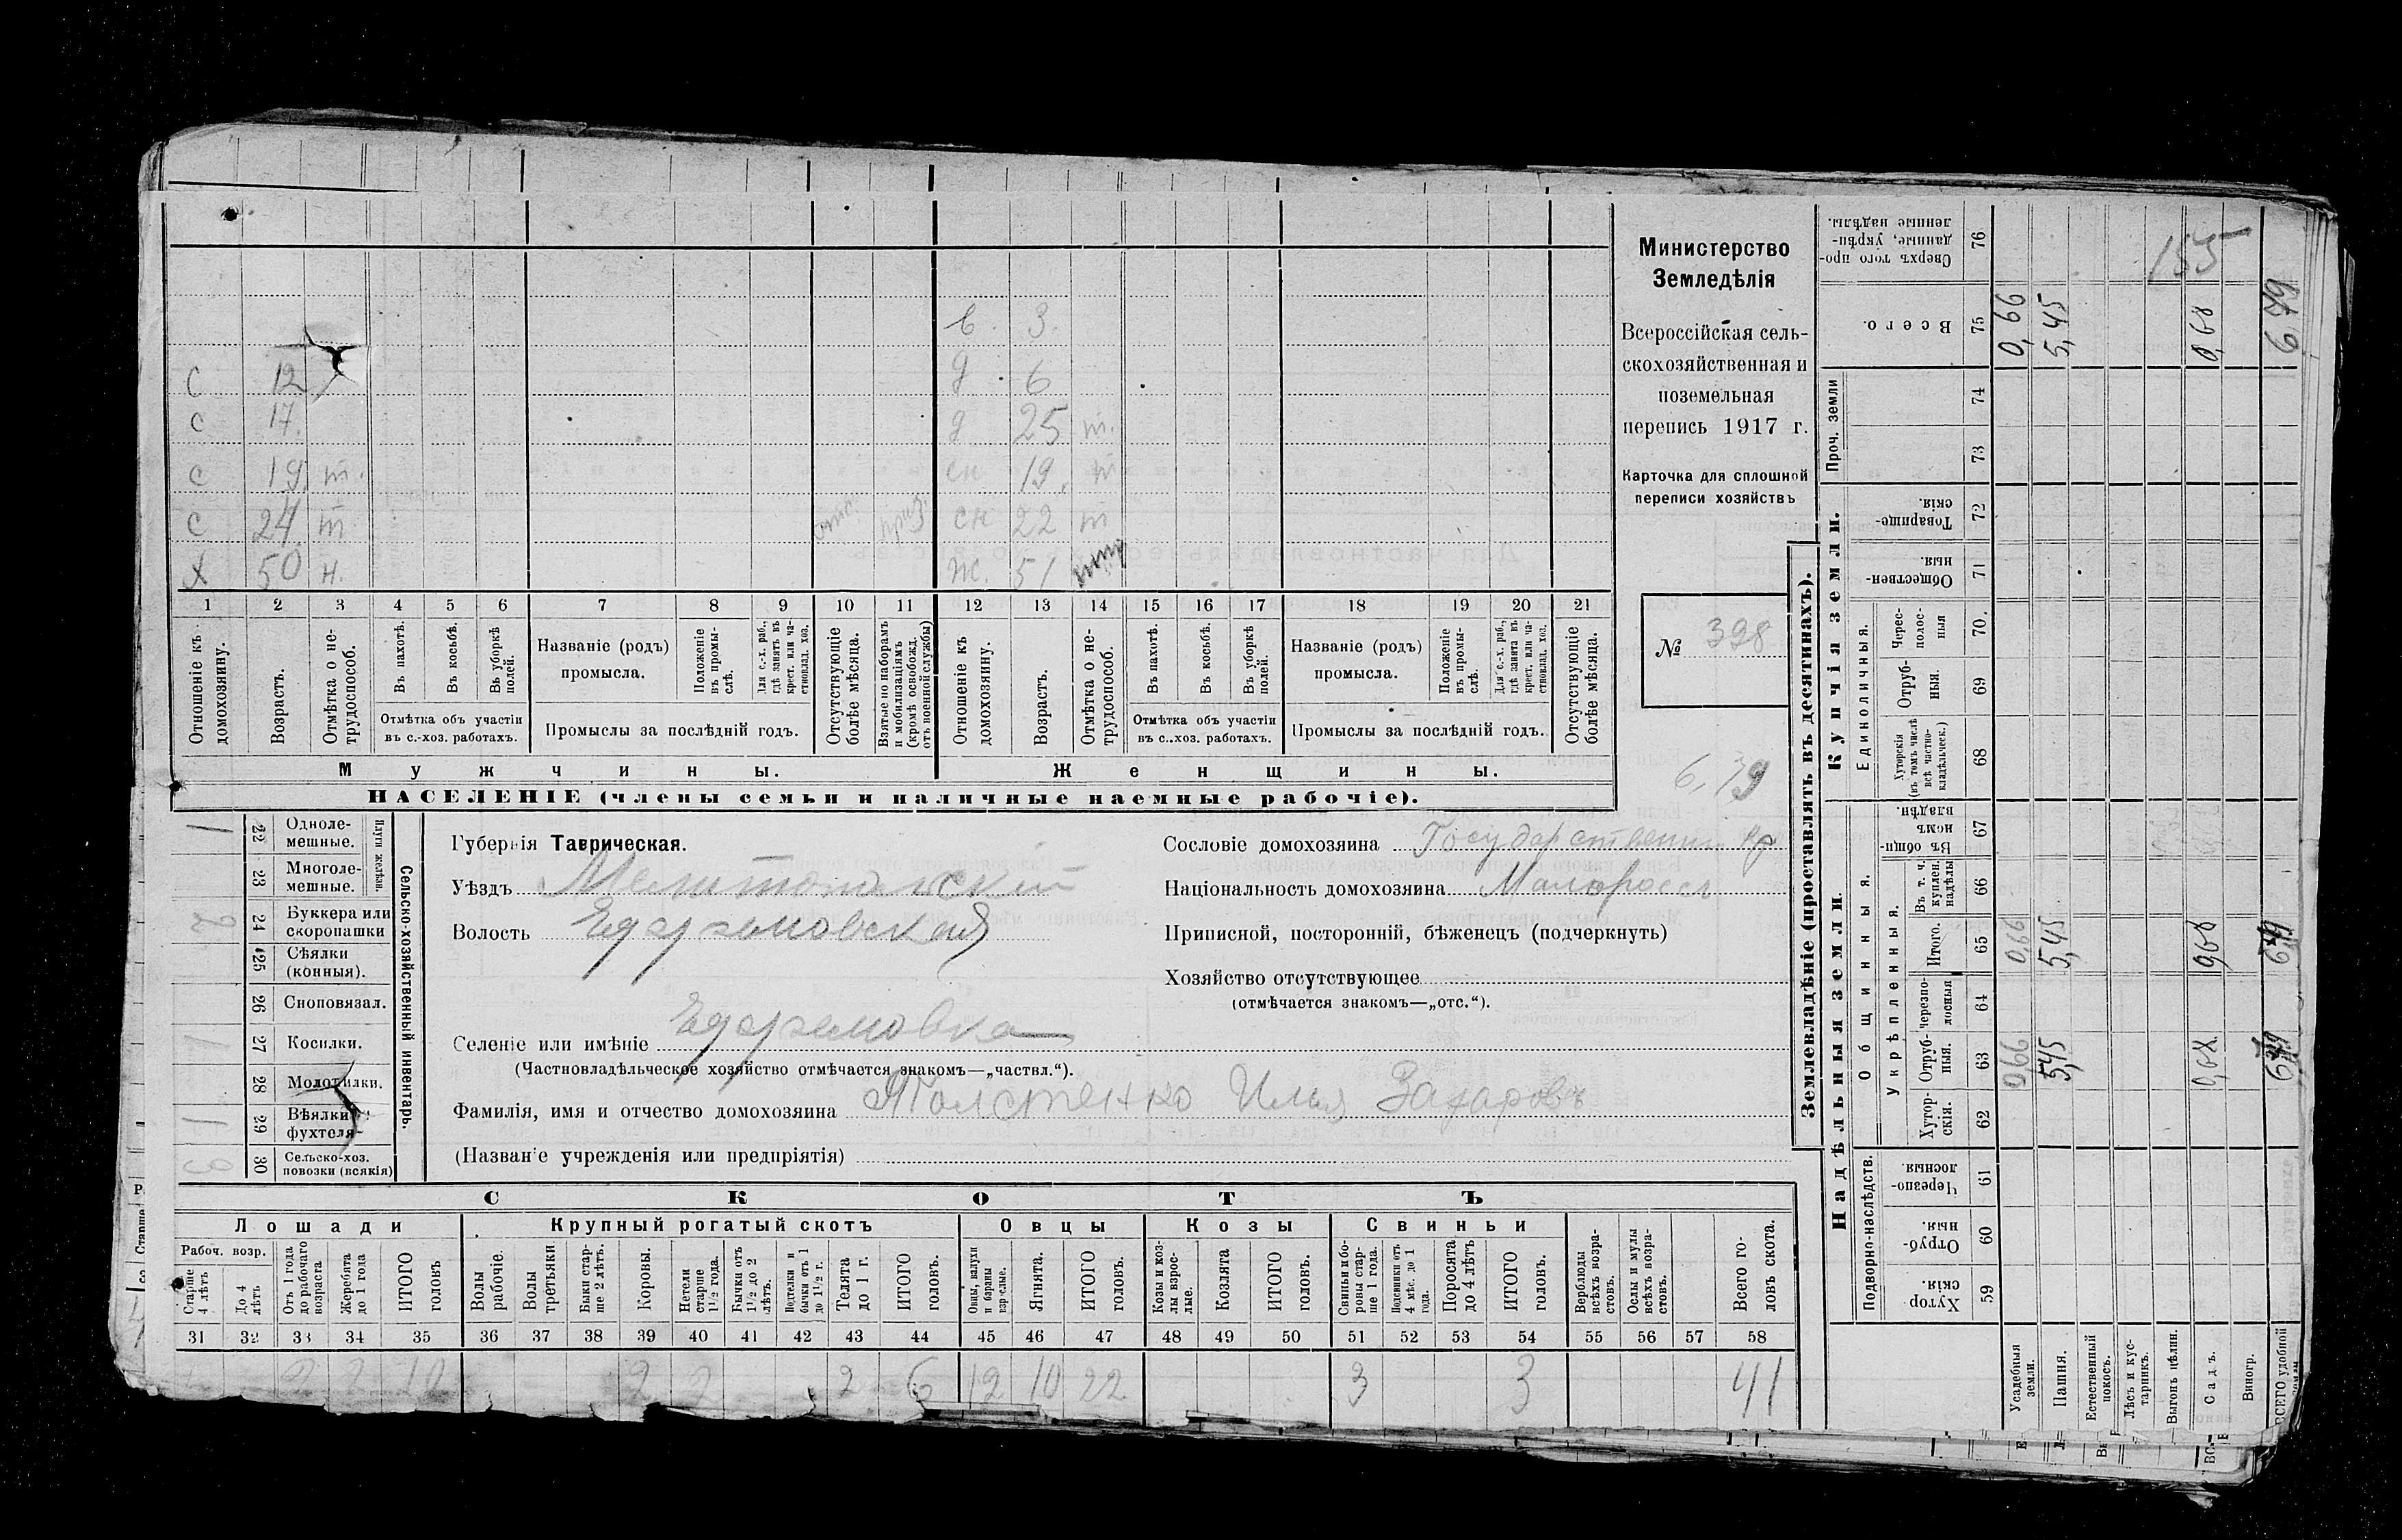 с 12
с 17
с 19 т.
с 24 т отс. приз.
х 50 н.
в. 3.
д. 6
д 25 т.
сн 19. т
сн 22 т
ж. 51
1 2 3 4 5 6 7 8 9 10 11 12 13 14 15 16 17 18 19 20 21
Отношеніе къ домохозяину.
Возрастъ.
Отмѣтка о не-трудоспособ.
Въ пахотѣ.
Въ косьбѣ.
Въ уборкѣ полей.
Отмѣтка объ участіи въ с.-хоз. работахъ.
Названіе (родъ) промысла.
Положеніе въ промы-слѣ.
Для с.-х. раб., гдѣ занятъ въ крест. или ча-стновлад. хоз.
Промыслы за послѣдній годъ.
Отсутствующіе болѣе мѣсяца.
Взятые по наборамъ и мобилизаціямъ (кромѣ освобожд. отъ военной службы)
Отношеніе къ домохозяину.
Возрастъ.
Отмѣтка о не-трудоспособ.
Въ пахотѣ.
Въ косьбѣ.
Въ уборкѣ полей.
Отмѣтка объ участіи въ с.-хоз. работахъ.
Названіе (родъ) промысла.
Положеніе въ промы-слѣ.
Для с.-х. раб., гдѣ занята въ крест. или ча-стновлад. хоз.
Промыслы за послѣдній годъ.
Отсутствующіе болѣе мѣсяца.
Мужчины.
Женщины.
НАСЕЛЕНІЕ (члены семьи и наличные наемные рабочіе).
Министерство
Земледѣлія
Всероссійская сель-
скохозяйственная и
поземельная
перепись 1917 г.
Карточка для сплошной
переписи хозяйствъ
№ 398
6,79
1 22 Одноле-мешные.
23 Многоле-мешные.
Плуги желѣзн.
2 24 Буккера или скоропашки
25 Сѣялки (конныя).
26 Сноповязал.
1 27 Косилки.
28 Молотилки.
1 29 Вѣялки фухтеля
30 Сельско-хоз. повозки (всякія)
Сельско-хозяйственный инвентарь.
Губернія Таврическая.
Уѣздъ Мелитопольскій
Волость Ефремовская
Селеніе или имѣніе Ефремовка
(Частновладѣльческое хозяйство отмѣчается знакомъ—„частвл.“).
Фамилія, имя и отчество домохозяина Толстенко Илья Захаровъ
(Названіе учрежденія или предпріятія)
Сословіе домохозяина Государственн. кр
Національность домохозяина Малоросс
Приписной, посторонній, бѣженецъ (подчеркнуть)
Хозяйство отсутствующее
(отмѣчается знакомъ—„отс.“).
СКОТЪ
Лошади Крупный рогатый скотъ Овцы Козы Свиньи
Рабоч. возр.
Старше 4 лѣтъ
До 4 лѣтъ
Отъ 1 года до рабочаго возраста
Жеребята до 1 года
ИТОГО головъ
Волы рабочіе.
Волы третьяки.
Быки стар-ше 2 лѣтъ.
Коровы.
Нетели старше 1½ года.
Бычки отъ 1½ до 2 лѣтъ.
Подтелки и бычки отъ 1 до 1½ г.
Телята до 1 г.
ИТОГО головъ.
Овцы, валухи и бараны взрослые.
Ягнята.
ИТОГО головъ.
Козы и коз-лы взрос-лые.
Козлята
ИТОГО головъ.
Свиньи и бо-ровы стар-ше 1 года.
Подсвинки отъ 4 мѣс. до 1 года.
Поросята до 4 лѣтъ
ИТОГО головъ.
Верблюды всѣхъ возра-стовъ.
Ослы и мулы всѣхъ возра-стовъ.
Всего го-ловъ скота.
31 32 33 34 35 36 37 38 39 40 41 42 43 44 45 46 47 48 49 50 51 52 53 54 55 56 57 58
2 2 10 2 2 2 6 12 10 22 3 3 41
Землевладѣніе (проставлять въ десятинахъ).
Купчія земли.
Надѣльныя земли.
Сверхъ того про-данные, укрѣп-ленные надѣлы. 76
Всего. 75
Проч. земли 74 73
Товарище-скія. 72
Обществен-ныя. 71
Единоличныя.
Черес-полос-ныя 70.
Отруб-ныя. 69
Хуторскія (въ томъ числѣ всѣ частно-владѣльческ.) 68
Общинныя.
Въ общи-номъ владѣн. 67
Укрѣпленныя.
Въ т. ч. куплен. надѣлы 66
Итого. 65
Черезпо-лосныя 64
Отруб-ныя. 63
Хутор-скія. 62
Подворно-наслѣдств.
Черезпо-лосныя. 61
Отруб-ныя. 60
Хутор-скія. 59
Усадебныя земли. 0,66 0,66 0,66
Пашня. 5,45 5,45 5,45
Естественный покосъ.
Лѣсъ и кус-тарникъ.
Выгонъ цѣлин.
Садъ. 0,68 0,68 0,68
Виногр.
ВСЕГО удобной 6,79 6,79 6,79
155